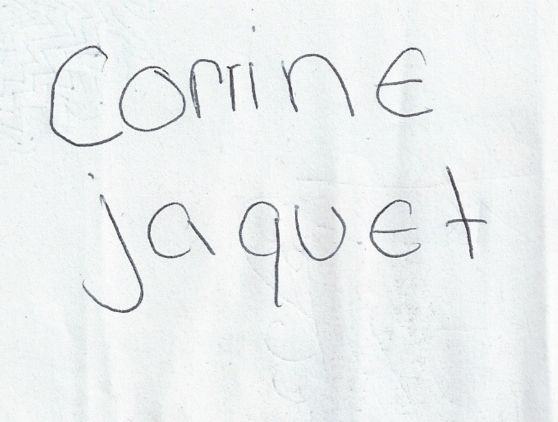 Corrine
jaquet